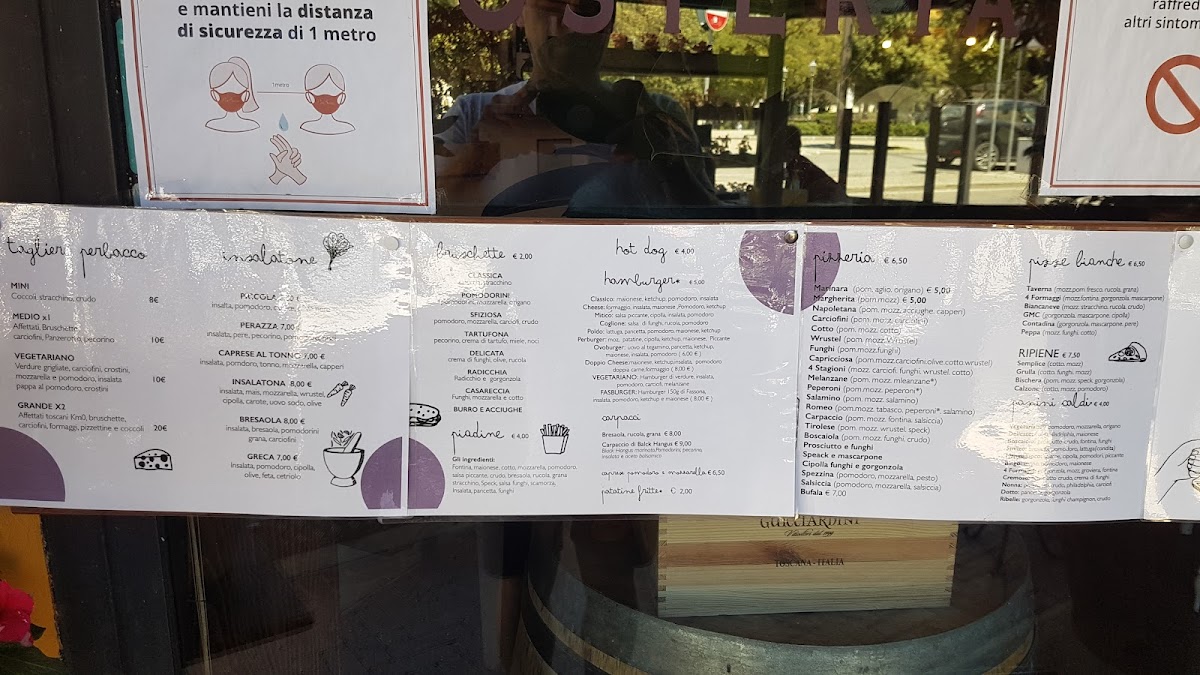 e mantieni la distanza
di sicurezza di 1 metro
1 metro
OSTERIA
raffred
altri sintom
taglieri perbacco
MINI
Coccoli, stracchino, crudo 8€
MEDIO x1
Affettati, Bruschette,
carciofini, Panzerotto, pecorino 10€
VEGETARIANO
Verdure grigliate, carciofini, crostini,
mozzarella e pomodoro, insalata
pappa al pomodoro, crostini 10€
GRANDE X2
Affettati toscani Km0, bruschette,
carciofini, formaggi, pizzettine e coccoli 20€
insalatone
PICCOLA
insalata, pomodoro,
PERAZZA 7,00 €
insalata, pere, pecorino, pomodoro
CAPRESE AL TONNO 7,00 €
insalata, pomodoro, tonno, mozzarella, capperi
INSALATONA 8,00 €
insalata, mais, mozzarella, wrustel,
cipolla, carote, uovo sodo, olive
BRESAOLA 8,00 €
insalata, bresaola, pomodorini
grana, carciofini
GRECA 7,00 €
Insalata, pomodoro, cipolla,
olive, feta, cetriolo
bruschette € 2,00
CLASSICA
stracchino
POMODORINI
pomodorini, mozzarella, origano
SFIZIOSA
pomodoro, mozzarella, carciofi, crudo
TARTUFONA
pecorino, crema di tartufo, miele, noci
DELICATA
crema di funghi, olive, rucola
RADICCHIA
Radicchio e gorgonzola
CASARECCIA
Funghi, mozzarella e cotto
BURRO E ACCIUGHE
piadine € 4,00
Gli ingredienti:
Fontina, maionese, cotto, mozzarella, pomodoro,
salsa piccante, crudo, bresaola, rucola, grana
stracchino, Speck, salsa funghi, scamorza,
insalata, pancetta, funghi
hot dog € 4,00
hamburger € 5,00
Classico: maionese, ketchup, pomodoro, insalata
Cheese: formaggio, insalata, maionese, Pomodoro, ketchup
Mitico: salsa piccante, cipolla, insalata, pomodoro
Coglione: salsa di funghi, rucola, pomodoro
Polido: lattuga, pancetta, pomodoro, maionese, ketchup
Perburger: moz, patatine, cipolla, ketchup, maionese, Piccante
Ovoburger: uovo al tegamino, pancetta, ketchup,
maionese, insalata, pomodoro ( 6,00 € )
Doppio Cheese: maionese, ketchup, insalata, pomodoro
doppia carne, formaggio ( 8,00 € )
VEGETARIANO: Hamburger di verdure, insalata,
pomodoro, carciofi, melanzane
FASBURGER: Hamburger 150g di Fassona,
insalata, pomodoro, ketchup e maionese ( 8,00 € )
carpacci
Bresaola, rucola, grana € 8,00
Carpaccio di Balck Hangus € 9,00
Black Hangus marinata, Pomodorini, pecorino,
insalata e aceto balsamico
caprese pomodoro e mozzarella € 6,50
patatine fritte € 2,00
pizzeria € 6,50
Marinara (pom, aglio, origano) € 5,00
Margherita (pom.mozz) € 5,00
Napoletana (pom, mozz, acciughe, capperi)
Carciofini (pom. mozz. carciofini)
Cotto (pom. mozz. cotto)
Wrustel (pom.mozz.Wrustel)
Funghi (pom.mozz.funghi)
Capricciosa (pom.mozz.carciofini,olive.cotto.wrustel)
4 Stagioni (mozz. carciofi. funghi. wrustel. cotto)
Melanzane (pom. mozz. mleanzane*)
Peperoni (pom. mozz. peperoni*)
Salamino (pom. mozz. salamino)
Romeo (pom.mozz. tabasco, peperoni*, salamino)
Carpaccio (pom.mozz. fontina, salsiccia)
Tirolese (pom.mozz. wrustel. speck)
Boscaiola (pom.mozz. funghi. crudo)
Prosciutto e funghi
Speack e mascarpone
Cipolla funghi e gorgonzola
Spezzina (pomodoro, mozzarella, pesto)
Salsiccia (pomodoro, mozzarella, salsiccia)
Bufala € 7,00
pizze bianche € 6,50
Taverna (mozz.pom fresco, rucola, grana)
4 Formaggi (mozz.fontina, gorgonzola, mascarpone)
Biancaneve (mozz. stracchino, rucola, crudo)
GMC (gorgonzola, mascarpone, cipolla)
Contadina (gorgonzola, mascarpone, pere)
Peppa (mozz. funghi. cotto)
RIPIENE € 7,50
Semplice (cotto, mozz)
Grulla (cotto, funghi, mozz)
Bischera (mozz. speck, gorgonzola)
Calzone (cotto, mozz, pomodoro)
panini caldi € 4,00
pomodoro, mozzarella, origano
philadelphia, maionese
crudo, fontina, funghi
pomodoro, lattuga(condita)
cipolla, pomodoro, piccante
maionese
4 Form mozz, groviera, fontina
Cremoso crudo, crema di funghi
Nonna: crudo, philadelphia, carciofi
Dotto: gorgonzola
Ribelle: gorgonzola, funghi champignon, crudo
GUICCIARDINI
TOSCANA - ITALIA